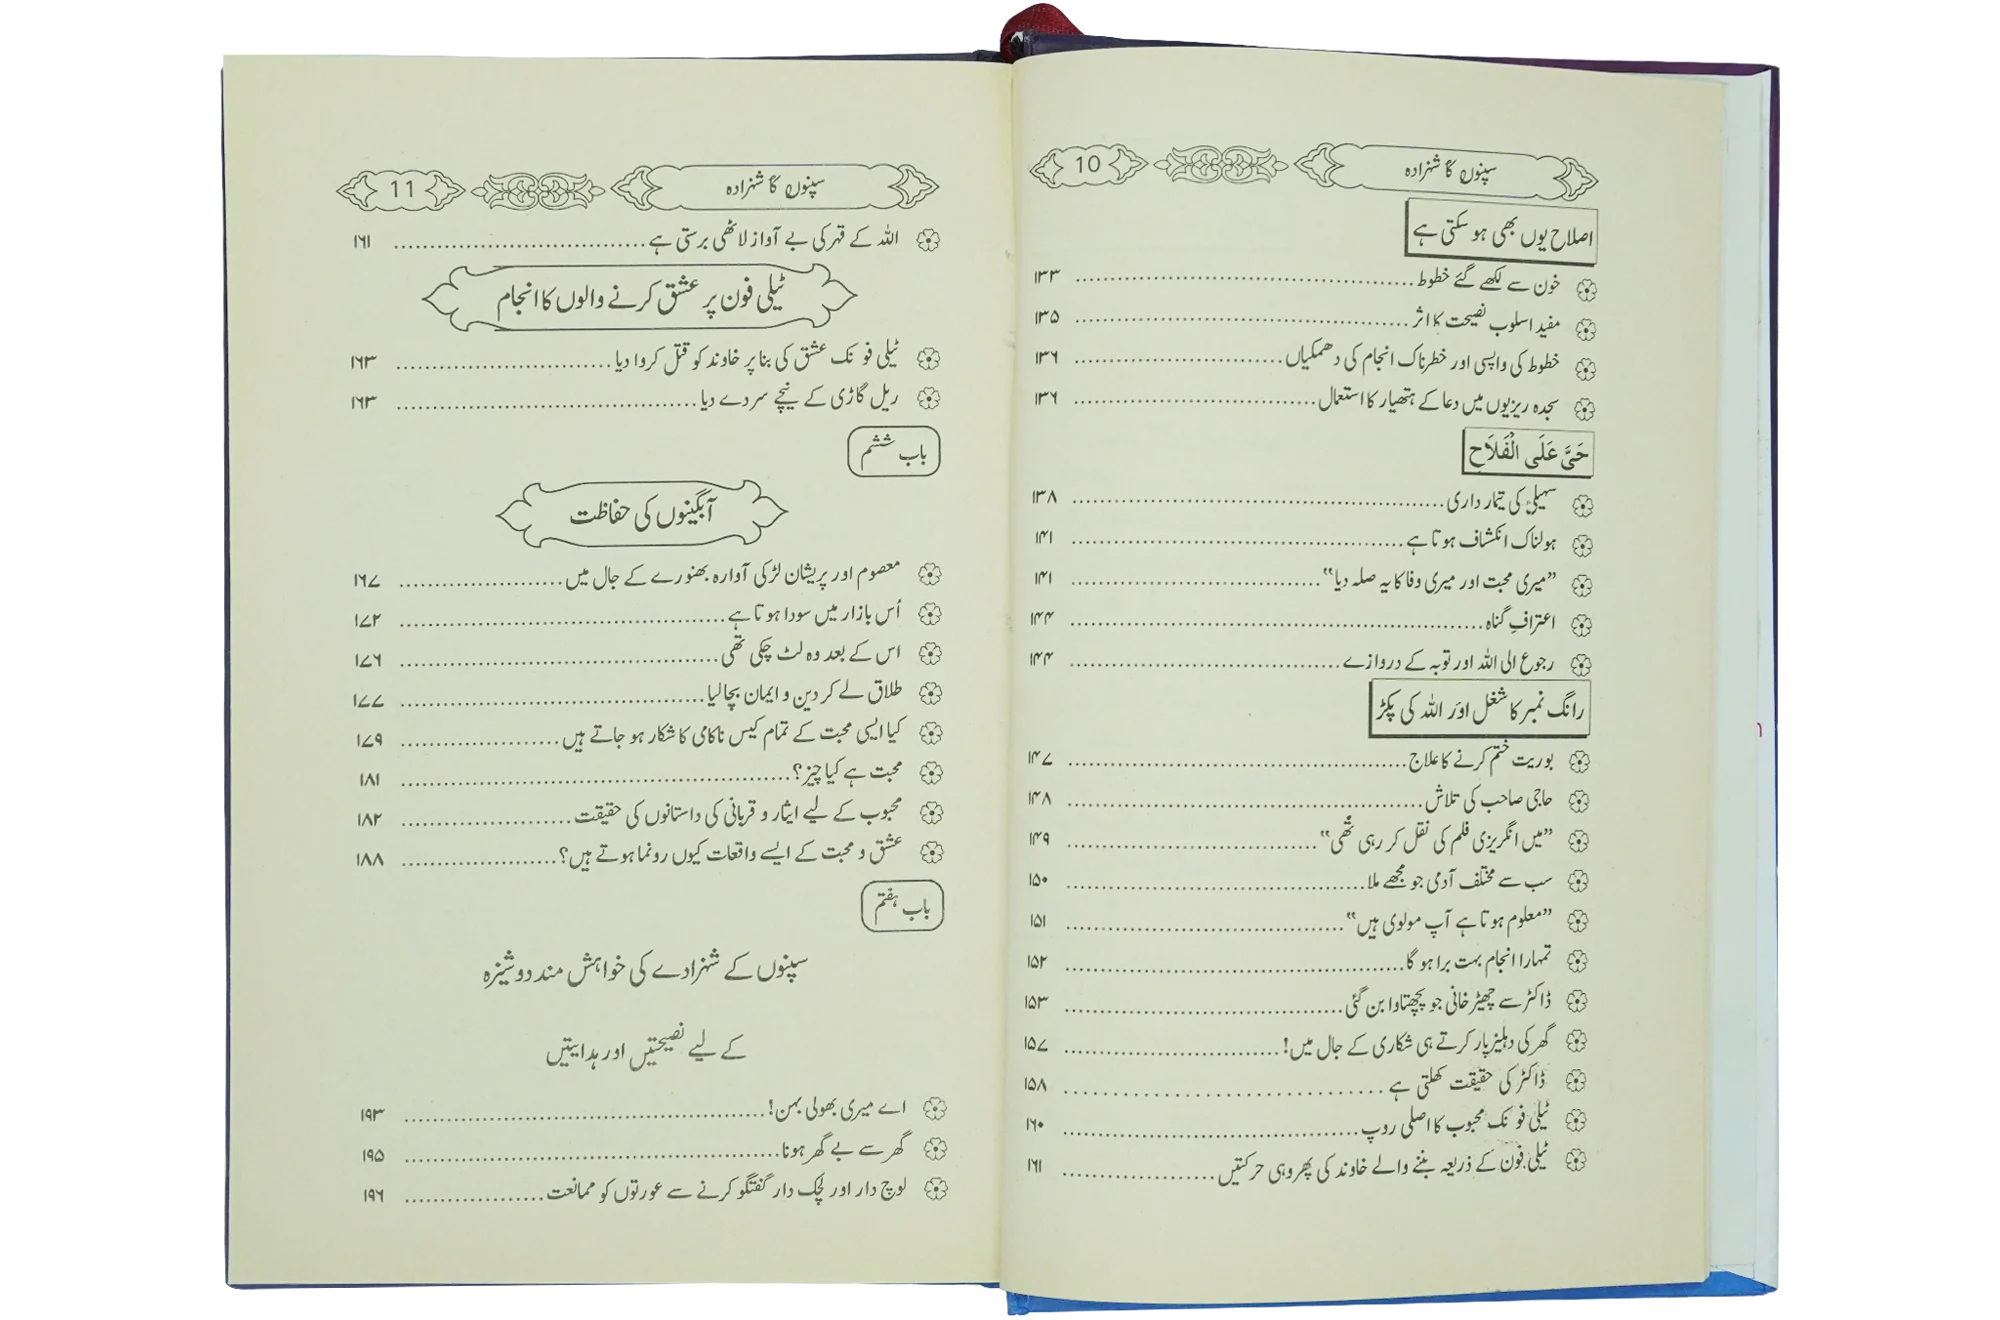 سپنوں کا شہزادہ 10
اصلاح یوں بھی ہو سکتی ہے
خون سے لکھے گئے خطوط ........ ۱۳۳
مفید اسلوب نصیحت کا اثر ........ ۱۳۵
خطوط کی واپسی اور خطرناک انجام کی دھمکیاں ........ ۱۳۶
سجدہ ریزیوں میں دعا کے ہتھیار کا استعمال ........ ۱۳۶
حَیَّ عَلَی الْفَلَاحِ
سہیلی کی تیمار داری ........ ۱۳۸
ہولناک انکشاف ہوتا ہے ........ ۱۴۱
”میری محبت اور میری وفا کا یہ صلہ دیا“ ........ ۱۴۱
اعترافِ گناہ ........ ۱۴۴
رجوع الی اللہ اور توبہ کے دروازے ........ ۱۴۴
رانگ نمبر کا شغل اور اللہ کی پکڑ
بوریت ختم کرنے کا علاج ........ ۱۴۷
حاجی صاحب کی تلاش ........ ۱۴۸
”میں انگریزی فلم کی نقل کر رہی تھی“ ........ ۱۴۹
سب سے مختلف آدمی جو مجھے ملا ........ ۱۵۰
”معلوم ہوتا ہے آپ مولوی ہیں“ ........ ۱۵۱
تمہارا انجام بہت برا ہو گا ........ ۱۵۲
ڈاکٹر سے چھیڑ خانی جو پچھتاوا بن گئی ........ ۱۵۳
گھر کی دہلیز پار کرتے ہی شکاری کے جال میں! ........ ۱۵۷
ڈاکٹر کی حقیقت کھلتی ہے ........ ۱۵۸
ٹیلی فونک محبوب کا اصلی روپ ........ ۱۶۰
ٹیلی فون کے ذریعہ بننے والے خاوند کی پھر وہی حرکتیں ........ ۱۶۱
سپنوں کا شہزادہ 11
اللہ کے قہر کی بے آواز لاٹھی برستی ہے ........ ۱۶۱
ٹیلی فون پر عشق کرنے والوں کا انجام
ٹیلی فونک عشق کی بنا پر خاوند کو قتل کروا دیا ........ ۱۶۳
ریل گاڑی کے نیچے سر دے دیا ........ ۱۶۳
باب ششم
آبگینوں کی حفاظت
معصوم اور پریشان لڑکی آوارہ بھنورے کے جال میں ........ ۱۶۷
اُس بازار میں سودا ہوتا ہے ........ ۱۷۲
اس کے بعد وہ لٹ چکی تھی ........ ۱۷۶
طلاق لے کر دین و ایمان بچا لیا ........ ۱۷۷
کیا ایسی محبت کے تمام کیس ناکامی کا شکار ہو جاتے ہیں ........ ۱۷۹
محبت ہے کیا چیز؟ ........ ۱۸۱
محبوب کے لیے ایثار و قربانی کی داستانوں کی حقیقت ........ ۱۸۲
عشق و محبت کے ایسے واقعات کیوں رونما ہوتے ہیں؟ ........ ۱۸۸
باب ہفتم
سپنوں کے شہزادے کی خواہش مند دوشیزہ
کے لیے نصیحتیں اور ہدایتیں
اے میری بھولی بہن! ........ ۱۹۳
گھر سے بے گھر ہونا ........ ۱۹۵
لوچ دار اور لچک دار گفتگو کرنے سے عورتوں کو ممانعت ........ ۱۹۶